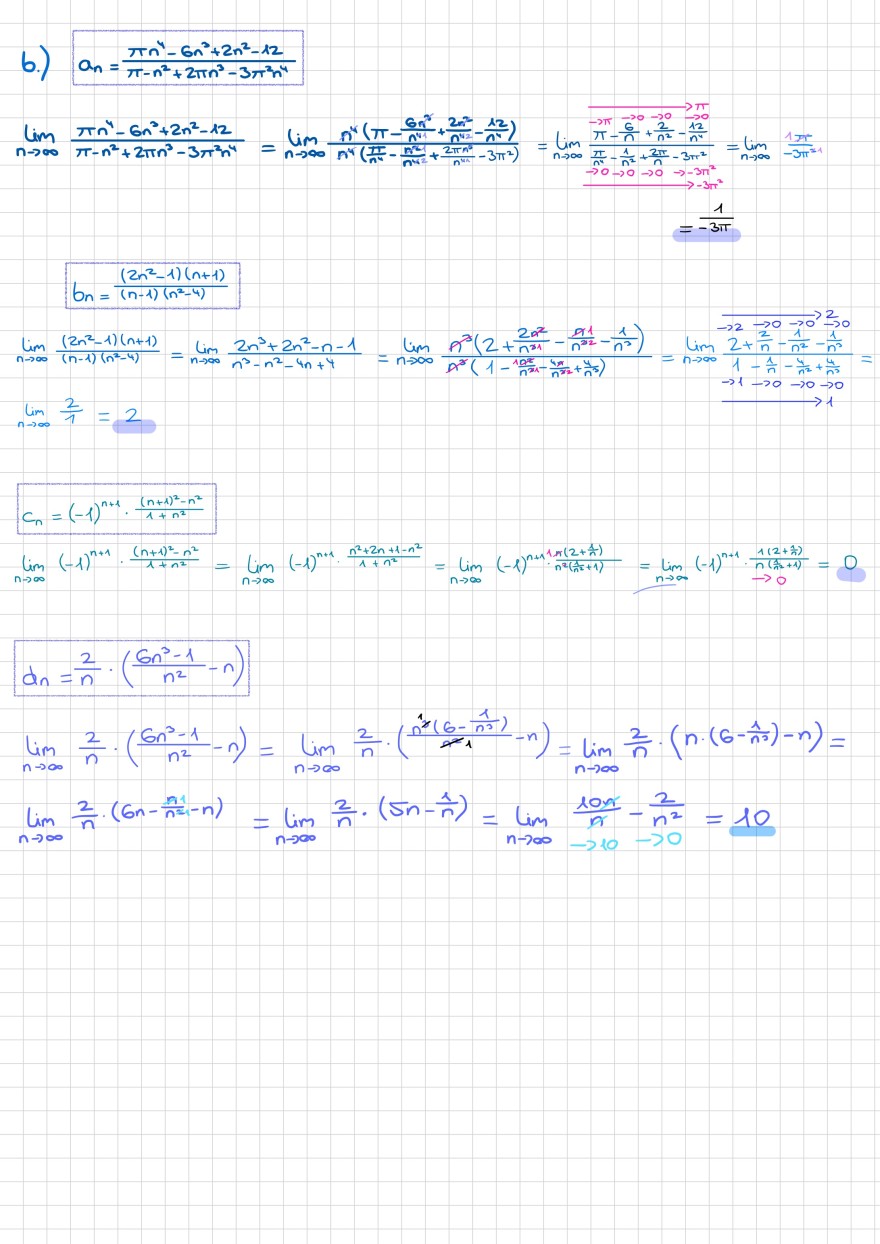 b.) aₙ = (πn⁴ - 6n³ + 2n² - 12)/(π - n² + 2πn³ - 3π²n⁴)
lim n→∞ (πn⁴ - 6n³ + 2n² - 12)/(π - n² + 2πn³ - 3π²n⁴) = lim n→∞ n⁴(π - 6n³/n⁴¹ + 2n²/n⁴² - 12/n⁴)/n⁴(π/n⁴ - n²¹/n⁴² + 2πn³/n⁴¹ - 3π²) = lim n→∞ (π - 6/n + 2/n² - 12/n⁴)/(π/n⁴ - 1/n² + 2π/n - 3π²) = lim n→∞ 1π/-3π²¹
→π
→π →0 →0 →0
→0 →0 →0 →-3π²
→-3π²
= 1/-3π
bₙ = (2n²-1)(n+1)/(n-1)(n²-4)
lim n→∞ (2n²-1)(n+1)/(n-1)(n²-4) = lim n→∞ (2n³+2n²-n-1)/(n³-n²-4n+4) = lim n→∞ n³(2 + 2n²/n³¹ - n1/n³² - 1/n³)/n³(1 - 1n²/n³¹ - 4n/n³² + 4/n³) = lim n→∞ (2 + 2/n - 1/n² - 1/n³)/(1 - 1/n - 4/n² + 4/n³) =
→2
→2 →0 →0 →0
→1 →0 →0 →0
→1
lim n→∞ 2/1 = 2
cₙ = (-1)ⁿ⁺¹ · ((n+1)²-n²)/(1+n²)
lim n→∞ (-1)ⁿ⁺¹ · ((n+1)²-n²)/(1+n²) = lim n→∞ (-1)ⁿ⁺¹ · (n²+2n+1-n²)/(1+n²) = lim n→∞ (-1)ⁿ⁺¹ · 1n(2+1/n)/n²(1/n²+1) = lim n→∞ (-1)ⁿ⁺¹ · 1(2+1/n)/n(1/n²+1) = 0
→0
dₙ = 2/n · ((6n³-1)/n² - n)
lim n→∞ 2/n · ((6n³-1)/n² - n) = lim n→∞ 2/n · (n³¹(6 - 1/n³)/n²1 - n) = lim n→∞ 2/n · (n·(6 - 1/n³) - n) =
lim n→∞ 2/n · (6n - n1/n³ - n) = lim n→∞ 2/n · (5n - 1/n) = lim n→∞ 10n/n - 2/n² = 10
→10 →0